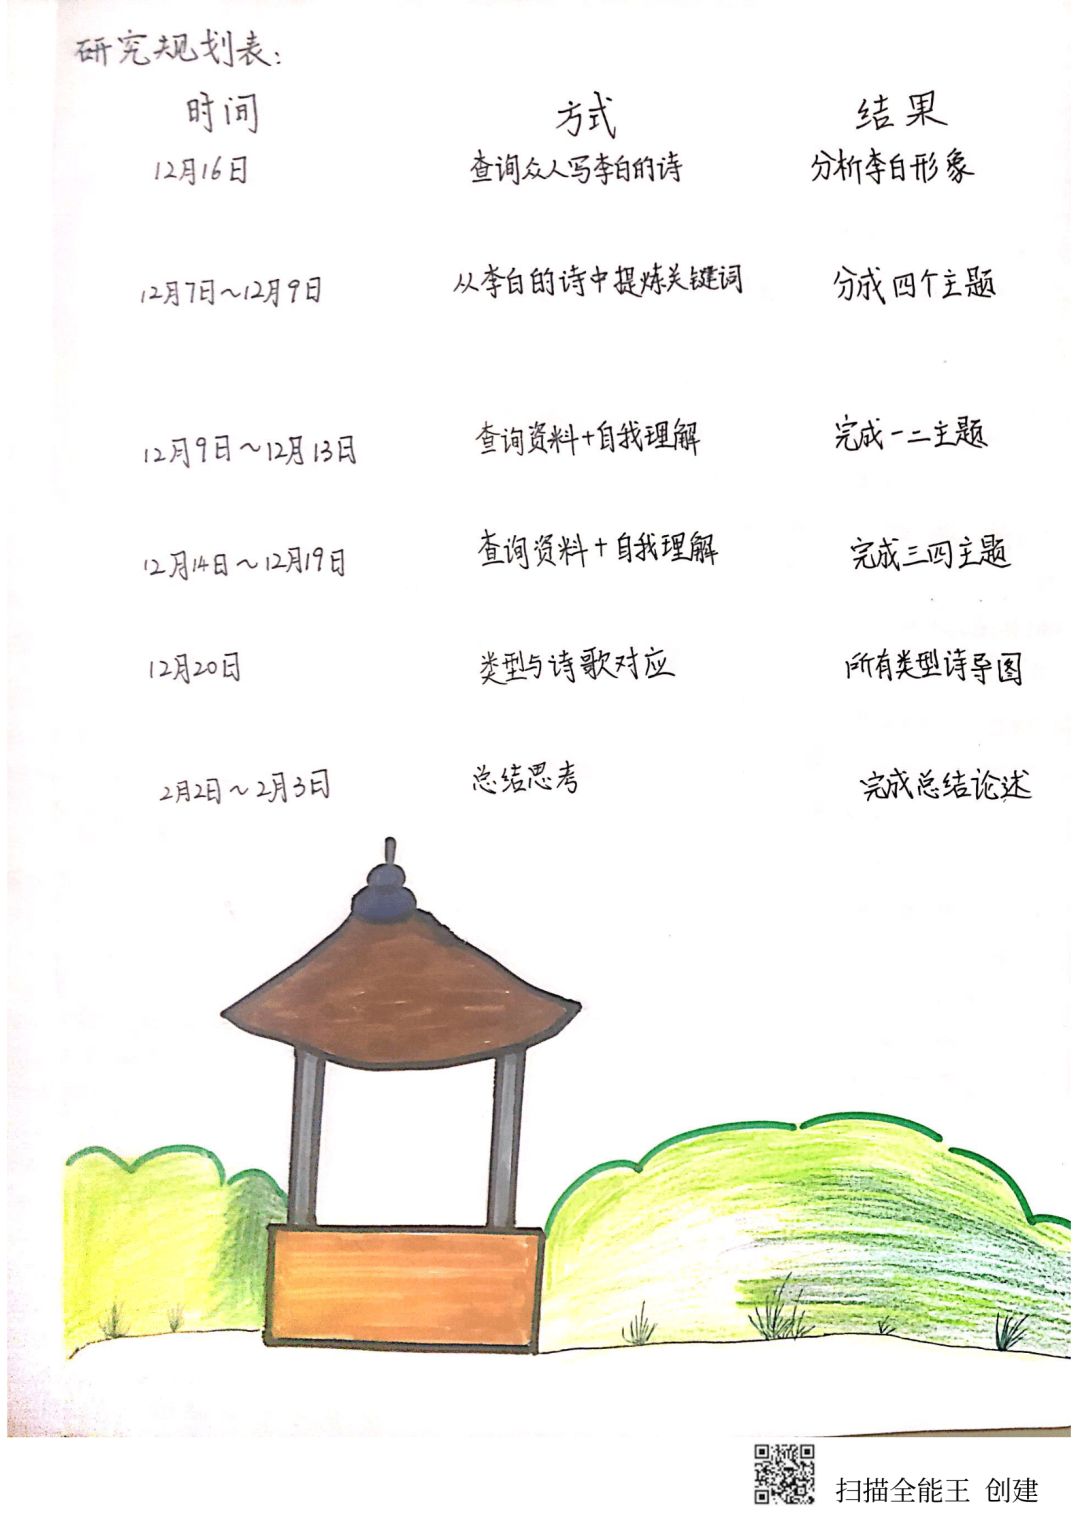 研究规划表:
时间 方式 结果
12月16日 查询众人写李白的诗 分析李白形象
12月7日~12月9日 从李白的诗中提炼关键词 分成四个主题
12月9日~12月13日 查询资料+自我理解 完成一二主题
12月14日~12月19日 查询资料+自我理解 完成三四主题
12月20日 类型与诗歌对应 所有类型诗导图
2月2日~2月3日 总结思考 完成总结论述
扫描全能王 创建